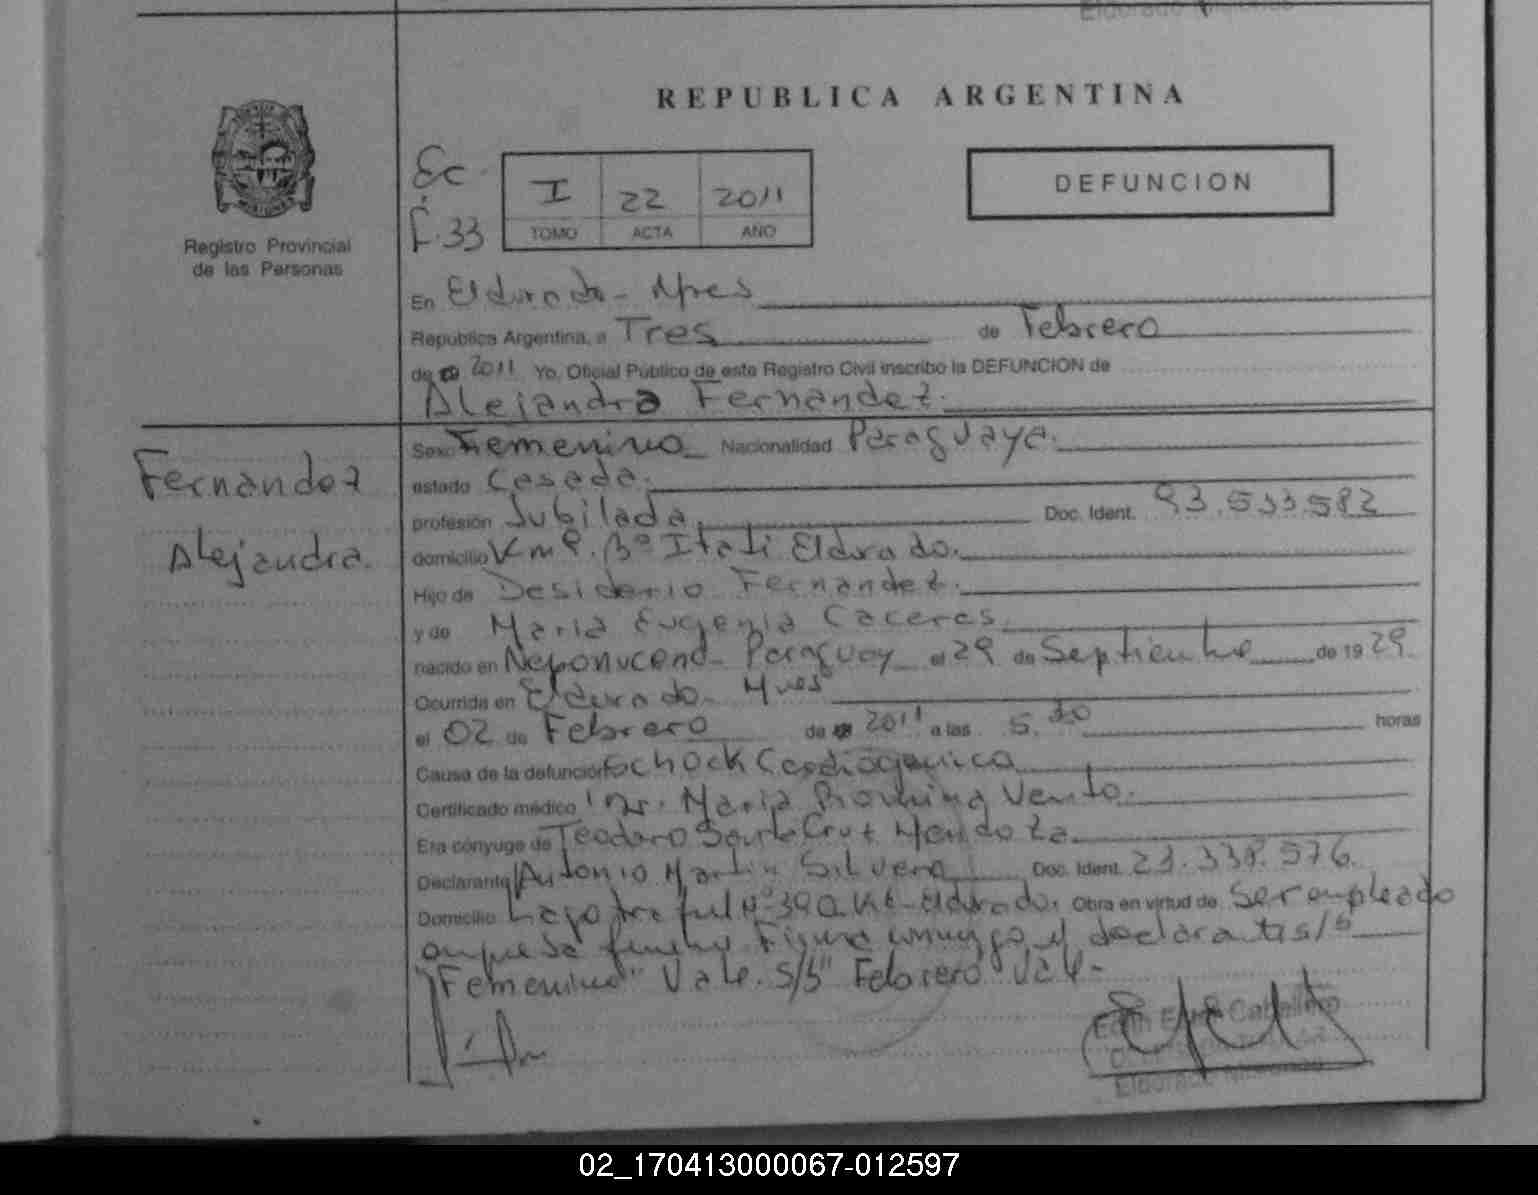 REPUBLICA ARGENTINA
Registro Provincial
de las Personas
Ec.
F.33
I 22 2011
TOMO ACTA AÑO
DEFUNCION
En Eldorado - Mnes
República Argentina, a Tres de Febrero
de 2011 Yo, Oficial Público de este Registro Civil inscribo la DEFUNCION de
Alejandra Fernandez.
Fernandez
Alejandra.
Sexo Femenino Nacionalidad Paraguaya.
estado Casada.
profesión Jubilada Doc. Ident. 93.533.582
domicilio Km 9. Bº Itati Eldorado.
Hijo de Desiderio Fernandez.
y de Maria Eugenia Caceres
nacido en Paraguay el 29 de Septiembre de 19 29.
Ocurrida en Eldorado - Mnes
el 02 de Febrero de 2011 a las 5.30 horas
Causa de la defunción Schock Cardiogenico
Certificado médico Dr. Maria Vento.
Era cónyuge de Teodoro Cruz Mendoza
Declarante Antonio Martin Silvero Doc. Ident. 23.338.576.
Domicilio Eldorado. Obra en virtud de Ser empleado
y declarante s/b
"Femenino" Vale. s/b "Febrero" Vale-
Edith Caballero
Eldorado Misiones
02_170413000067-012597